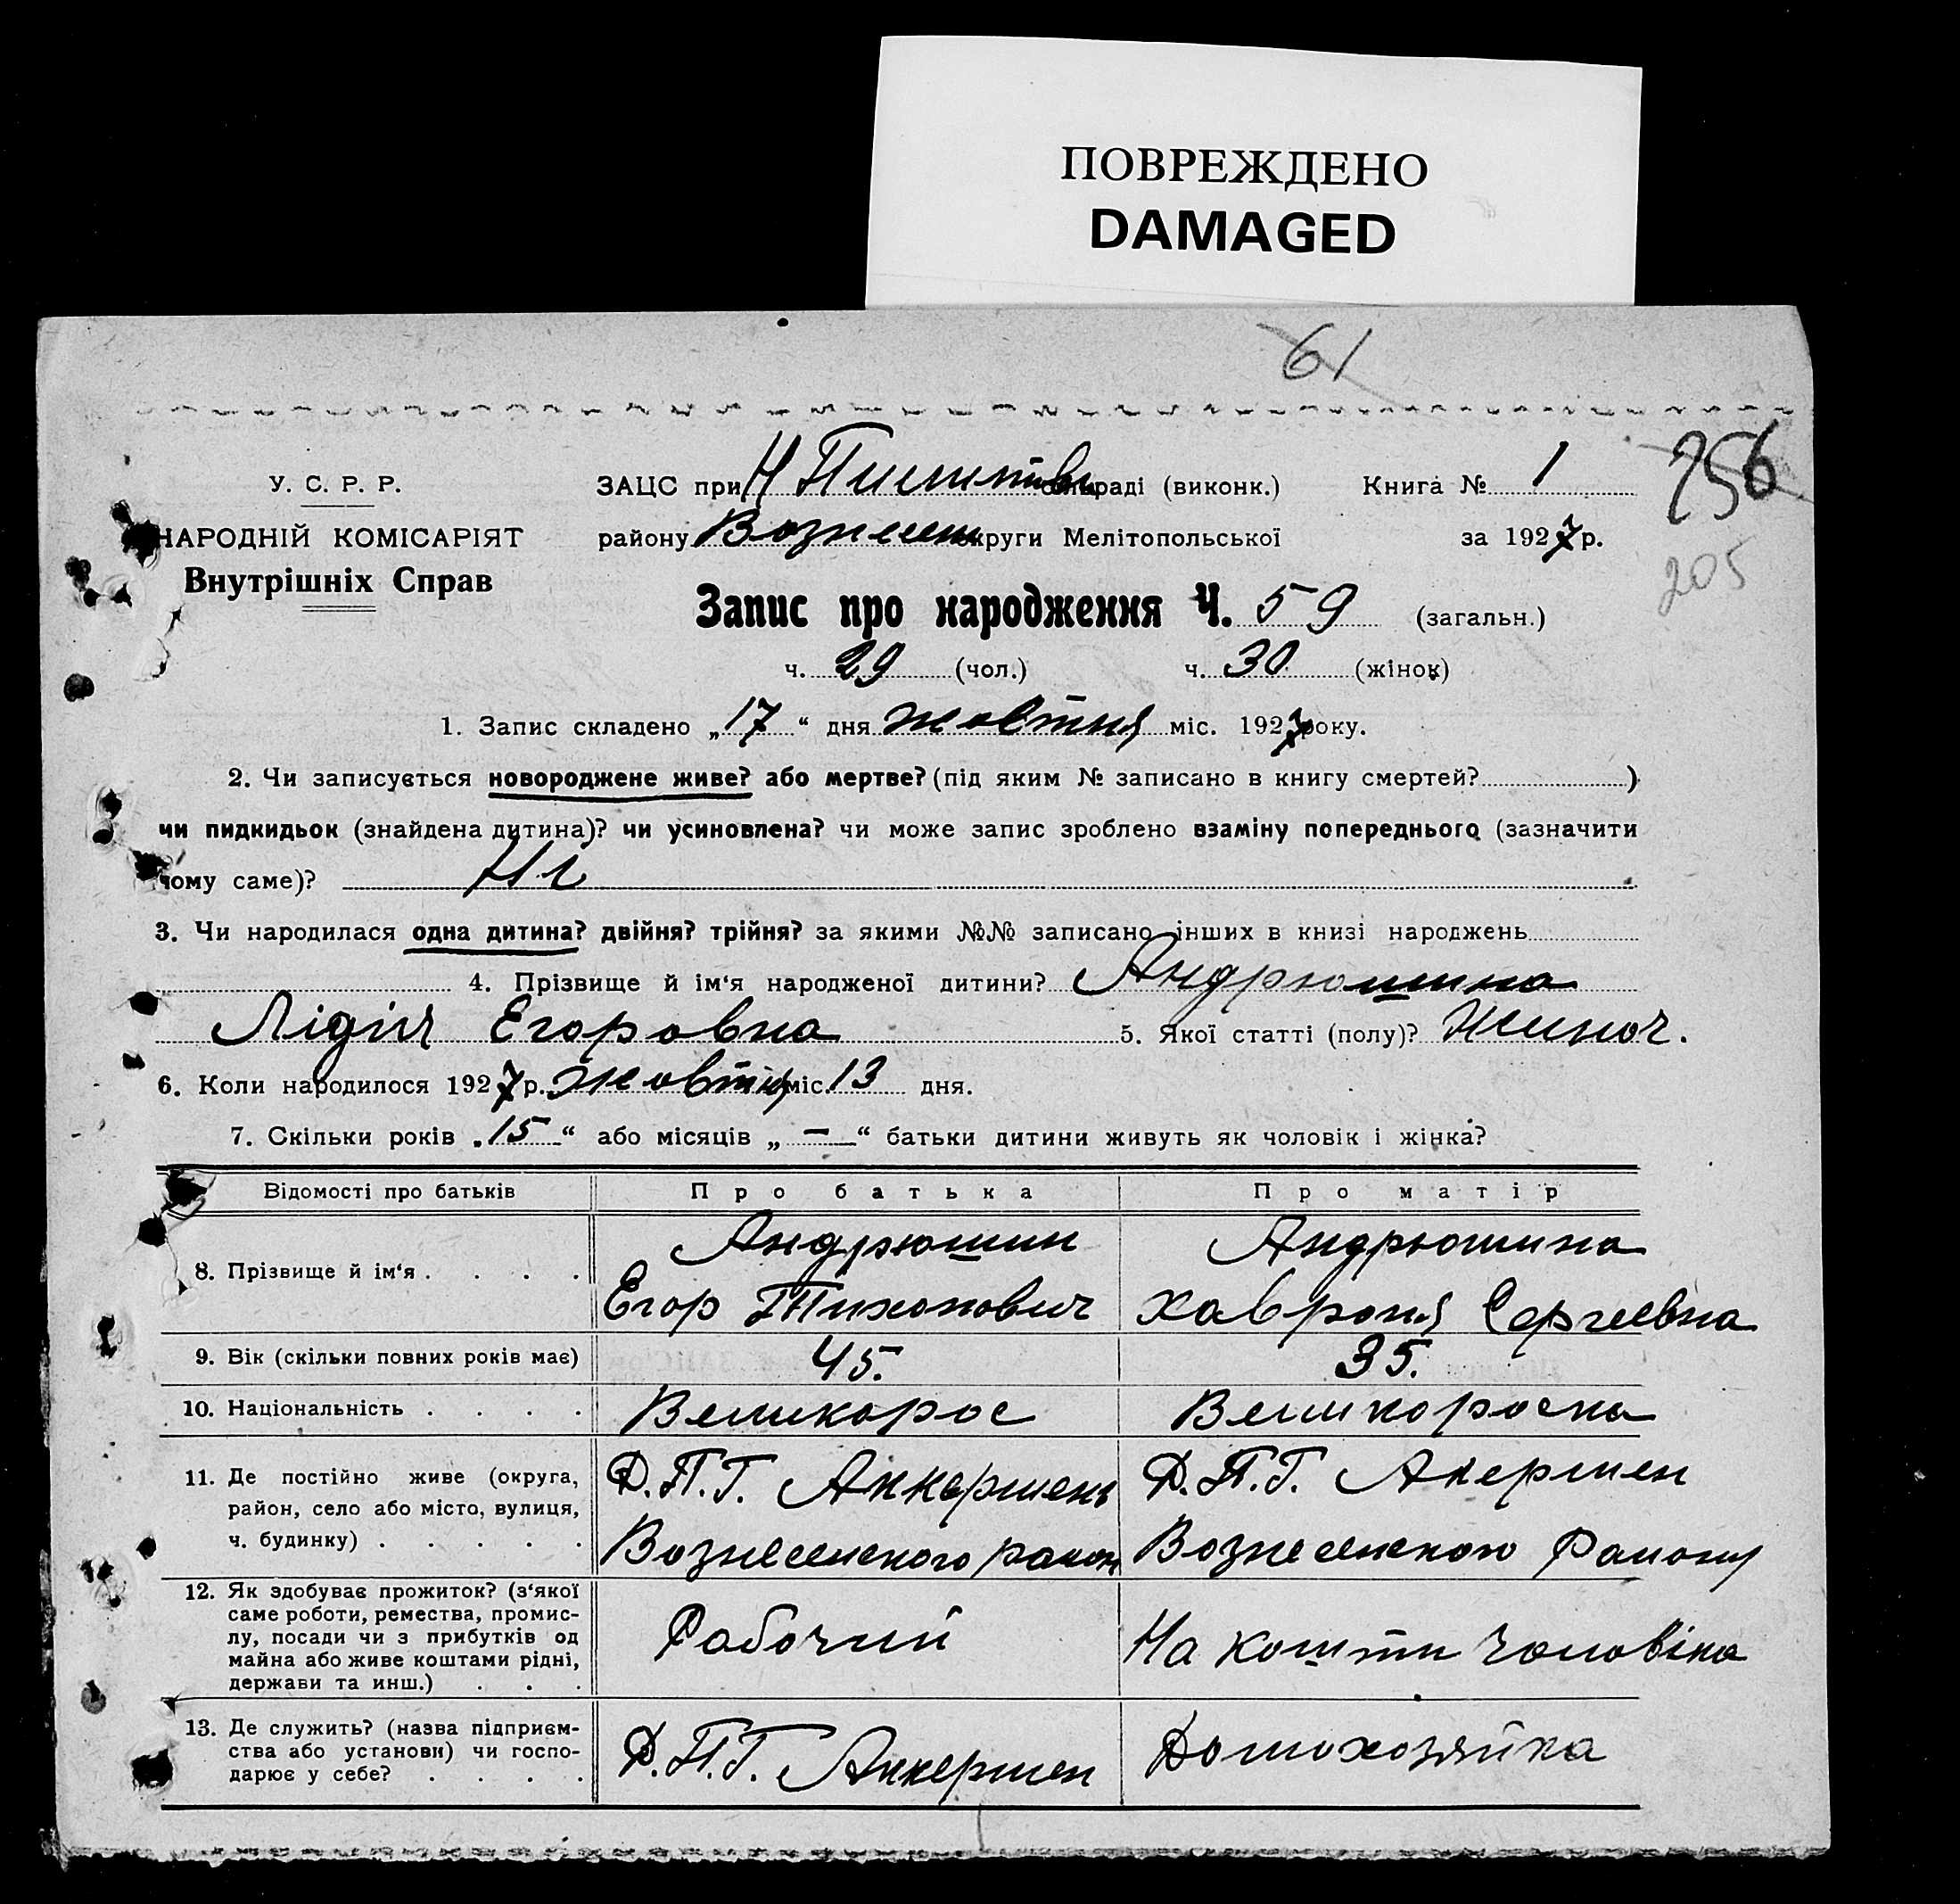 ПОВРЕЖДЕНО
DAMAGED
61
256
205
У. С. Р. Р.
НАРОДНІЙ КОМІСАРІЯТ
Внутрішніх Справ
ЗАЦС при Н раді (виконк.) Книга № 1
району Вознесен округи Мелітопольської за 1927 р.
Запис про народження Ч. 59 (загальн.)
ч. 29 (чол.) ч. 30 (жінок)
1. Запис складено „17“ дня жовтня міс. 1927 року.
2. Чи записується новороджене живе? або мертве? (під яким № записано в книгу смертей? )
чи пидкидьок (знайдена дитина)? чи усиновлена? чи може запис зроблено взаміну попереднього (зазначити
чому саме)? Ні
3. Чи народилася одна дитина? двійня? трійня? за якими №№ записано інших в книзі народжень
4. Прізвище й ім‘я народженої дитини? Андрюшина
Лідія Егоровна 5. Якої статті (полу)? Жиноч.
6. Коли народилося 1927 р. жовтня міс. 13 дня.
7. Скільки років „15“ або місяців „—“ батьки дитини живуть як чоловік і жінка?
Відомості про батьків Про батька Про матір
8. Прізвище й ім‘я . . . . Андрюшин Андрюшина
Егор Тихонович Хавроня Сергеевна
9. Вік (скільки повних років має) 45. 35.
10. Національність . . . . Великорос Великороска
11. Де постійно живе (округа, район, село або місто, вулиця, ч. будинку) . . . . . Д.П.Г. Аккермень Д.П.Г. Акермен
Вознесенского район Вознесенского Району
12. Як здобуває прожиток? (з‘якої
саме роботи, ремества, промис-
лу, посади чи з прибутків од
майна або живе коштами рідні,
держави та инш.) . . . Рабочий На кошти чоловіка
13. Де служить? (назва підприєм-
ства або установи) чи госпо-
дарює у себе? . . . . Д.П.Г. Аккермен Домохозяйка